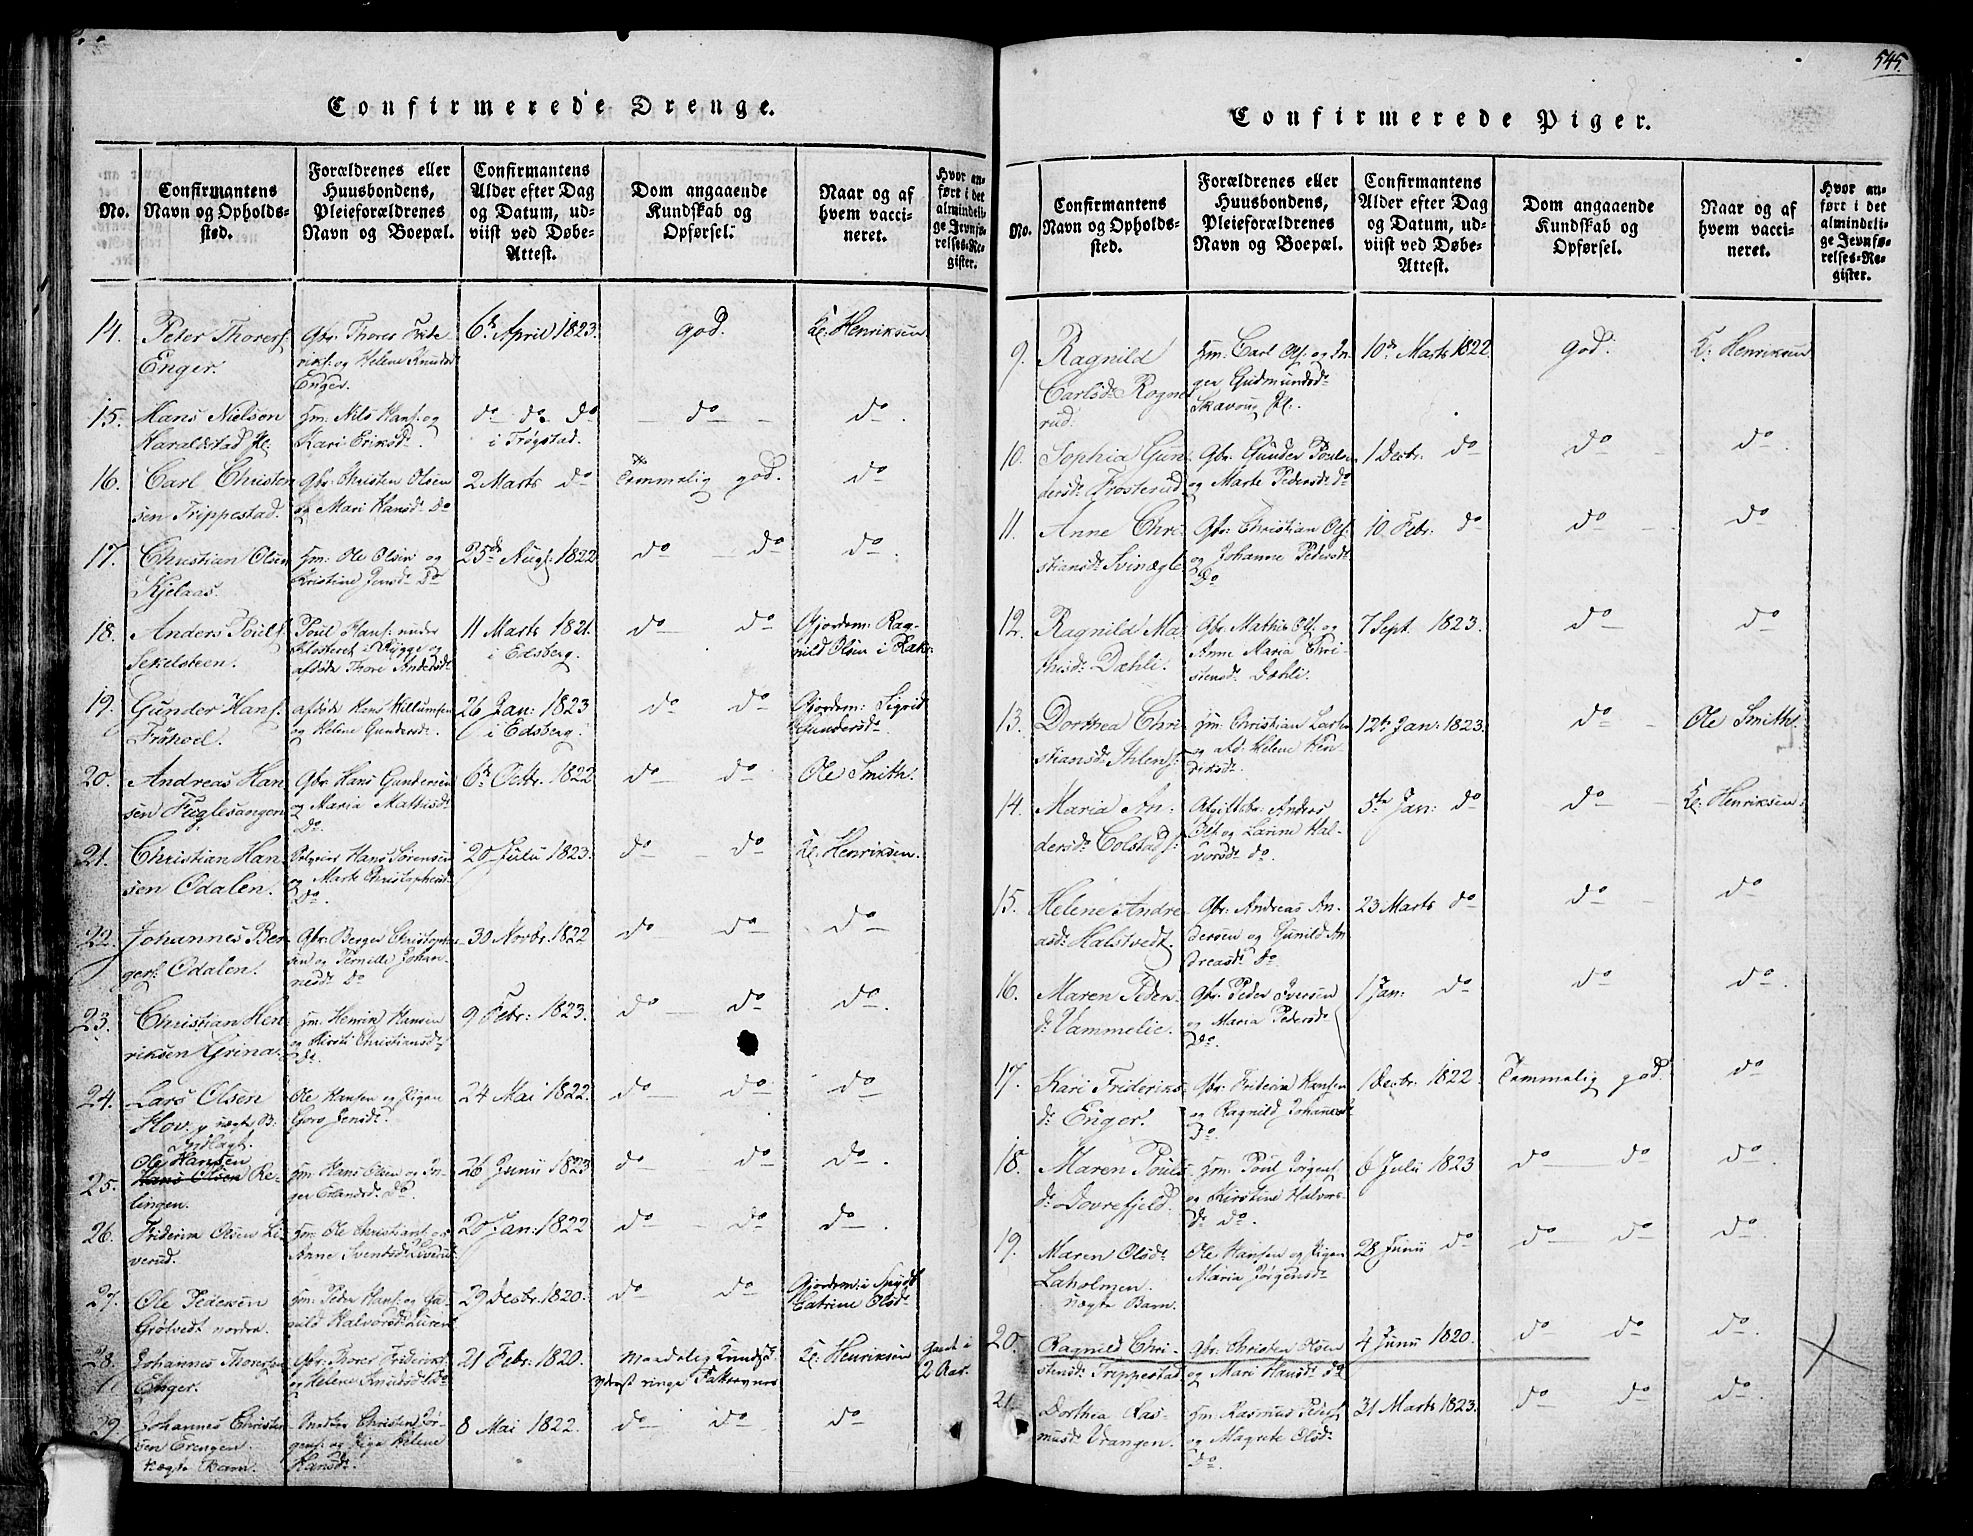 545.
Confirmerede Drenge.
No.
Confirmantens
Navn og Opholds-
sted.
Forældrenes eller
Huusbondens,
Pleieforældrenes
Navn og Boepæl.
Confirmantens
Alder efter Dag
og Datum, ud-
viist ved Døbe-
Attest.
Dom angaaende
Kundskab og
Opførsel.
Naar og af
hvem vacci-
neret.
Hvor an-
ført i det
almindeli-
ge Jevnfø-
relses-Re-
gister.
14.
Peter Thorers.
Enger.
Gbr: Thorer Fride
riks. og Helene Knudsd.
Enger.
6te April 1823.
god.
Kl: Henriksen
15.
Hans Nielsen
Haraldstad Pl.
Hm: Nils Hans. og
Kari Eriksd.
do do do
i Trøgstad.
do
do
16.
Carl Christen
sen Trippestad.
Gbr: Christen Olsen
og Mari Hansd. do
2 Marts do
Temmelig god.
do
17.
Christian Olsen
Kjelaas.
Hm: Ole Olsen og
Kristine Jensd. do
25de Augt: 1822
do do
do
18.
Anders Pouls.
Sekelsteen.
Poul Hans. under
Klosteret i Rygge og
afdøde Thore Andersd.
11 Marts 1821.
i Edsberg.
do do
Gjordem: Rag-
nild Olsen i Rak:
19.
Gunder Hans.
Frøhoel.
afdøde Hans Killumsen
og Helene Gundersd.
26 Jan: 1823
i Edsberg.
do do
Gjordem: Sigrid
Gundersd.
20.
Andreas Han
sen Fuglesangen
Gbr: Hans Gundersen
og Maria Mathisd.
do.
6te Octbr. 1822
do do
Ole Smith.
21.
Christian Han-
sen Odalen.
Hans Sørensen
og Marte Christophersd.
do.
20 Julii 1823.
do do
Kl: Henriksen.
22.
Johannes Ber-
gers. Odalen.
Gbr: Berger Christopher
sen og Pernille Johan-
nesd. do
30 Novbr. 1822
do do
do
23.
Christian Hen
riksen Grina.
Hm: Henrik Hansen
og Kirsti Christiansd.
do.
9 Febr: 1823.
do do
do.
24.
Lars Olsen
Hov. uægte B.
Indlagt.
Ole Hansen og Pigen
Goro Jensd.
24 Mai 1822.
do do
do
25.
Ole Hansen
Hans Olsen Re-
lingen.
Hm: Hans Olsen og In-
ger Erlandsd. do
26 Junii 1823
do do
do.
26.
Friderik Olsen Li-
verud.
Hm: Ole Christians. og
Anne Svendsd. Liverud
20 Jan: 1822
do do
do.
27.
Ole Pedersen
Grøtvedt nordre.
Hm: Peder Hans. og Gu-
nild Halvorsd. Luren
29 Decbr. 1820.
do do
Gjordem: i Spydb.
Catrine Olsd.
28.
Johannes Thorersen
Enger.
Gbr: Thorer Frideriks.
og Helene Knudsd. do
21 Febr: 1820.
Maadelig Kundsk.
yderst ringe Fatteevne
Kl: Henriksen
Gaaet i
2 Aar.
29.
Johannes Christen
sen Trengen.
uægte Barn.
Christen Jør-
gens. og Pige Helene
Hansd.
8 Mai 1822.
do do
do
Confirmerede Piger.
No.
Confirmantens
Navn og Opholds-
sted.
Forældrenes eller
Huusbondens,
Pleieforældrenes
Navn og Boepæl.
Confirmantens
Alder efter Dag
og Datum, ud-
viist ved Døbe-
Attest.
Dom angaaende
Kundskab og
Opførsel.
Naar og af
hvem vacci-
neret.
Hvor an-
ført i det
almindeli-
ge Jevnfø-
relses-Re-
gister.
9.
Ragnild
Carlsd. Rogne
rud.
Hm: Carl Ols. og In-
ger Gudmundsd.
Skavoug Pl.
10de Marts 1822.
god.
Kl: Henriksen
10.
Sophia Gun
dersd. Frosterud
Gbr: Gunder Poulsen
og Marte Pedersd. do
1 Decbr: do
do
do
11.
Anne Chri-
stiansd. Svinægle
Gbr: Christian Ols.
og Johanne Pedersd.
do
10 Febr: do
do
do
12.
Ragnild Ma
thisd. Dæhli.
Gbr: Mathis Ols. og
Anne Maria Chri-
stensd. Dæhli.
7 Sept. 1823.
do
do
13.
Dorthea Chri
stiansd. Ihlens.
Hm: Christian Larsen
og afd: Helene Hen
riksd.
12te Jan: 1823.
do
Ole Smith.
14.
Maria An
dersd. Colstad.
Afgiftsbr: Anders
Ols. og Larine Hal-
vorsd. do.
5te Jan: do
do
Kl: Henriksen.
15.
Helene Andre
asd. Halstvedt.
Gbr: Andreas An-
dersen og Gunild An
dreasd. do
23 Marts do
do
do
16.
Maren Peder
sd. Vammelie.
Gbr: Peder Iversen
og Maria Pedersd.
do.
1 Jan: do
do
do
17.
Kari Frideriks
d. Enger.
Gbr: Friderik Hansen
og Ragnild Johannesd.
do.
1 Decbr. 1822.
Temmelig god.
do
18.
Maren Pouls
d. Dovrefjeld.
Hm: Poul Jørgens.
og Kirstine Halvors-
d. do.
6 Julii 1823
do do
do.
19.
Maren Olsd.
Laholmen.
uægte Barn.
Ole Hansen og Pigen
Maria Jørgensd.
28 Junii do
do do
do.
20.
Ragnild Chri-
stensd. Trippestad
Gbr: Christen Olsen
og Mari Hansd. do
4 Junii 1820.
do do
do.
21.
Dorthea Ras-
musd. Vrangen.
Hm: Rasmus Peders.
og Magrete Olsd.
do.
31 Marts 1823.
do do
do.